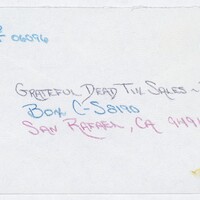 06096
GRATEFUL DEAD TIX SALES ~
BOX C-S8190
SAN RAFAEL, CA 9491